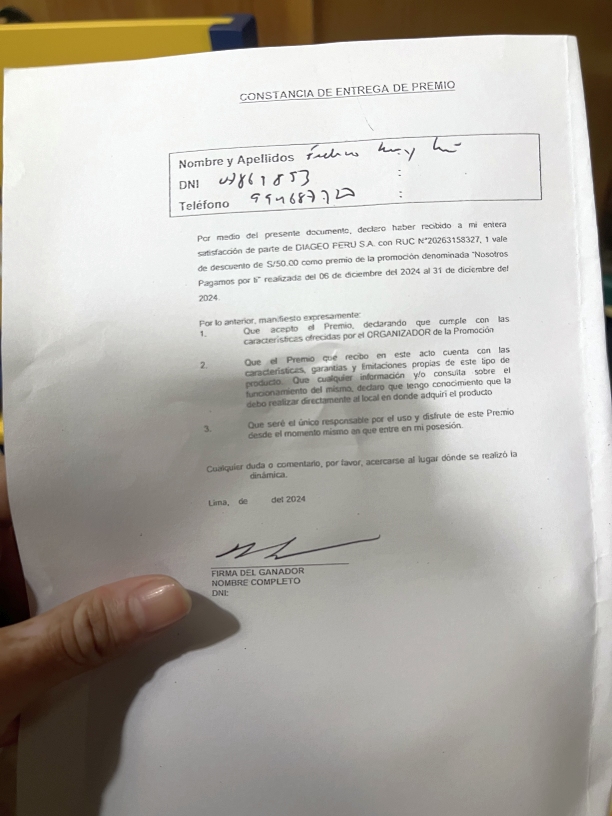 CONSTANCIA DE ENTREGA DE PREMIO
Nombre y Apellidos
DNI :
Teléfono :
Por medio del presente documento, declaro haber recibido a mi entera
satisfacción de parte de DIAGEO PERU S.A. con RUC N°20263158327, 1 vale
de descuento de S/50.00 como premio de la promoción denominada "Nosotros
Pagamos por ti" realizada del 06 de diciembre del 2024 al 31 de diciembre del
2024.
Por lo anterior, manifiesto expresamente:
1. Que acepto el Premio, declarando que cumple con las
características ofrecidas por el ORGANIZADOR de la Promoción
2. Que el Premio que recibo en este acto cuenta con las
características, garantías y limitaciones propias de este tipo de
producto. Que cualquier información y/o consulta sobre el
funcionamiento del mismo, declaro que tengo conocimiento que la
debo realizar directamente al local en donde adquirí el producto
3. Que seré el único responsable por el uso y disfrute de este Premio
desde el momento mismo en que entre en mi posesión.
Cualquier duda o comentario, por favor, acercarse al lugar dónde se realizó la
dinámica.
Lima, de del 2024
FIRMA DEL GANADOR
NOMBRE COMPLETO
DNI: